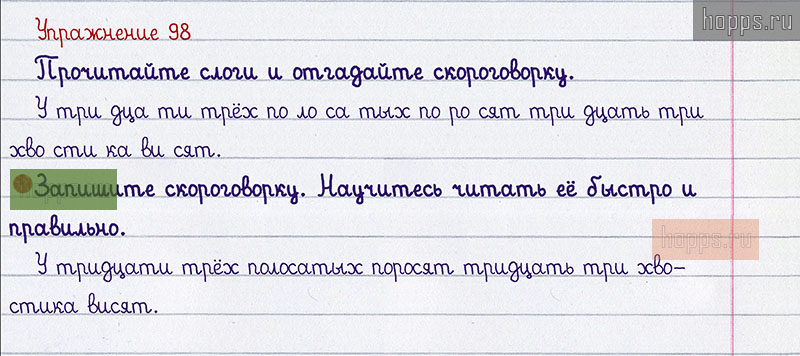 hopps.ru
Упражнение 98
Прочитайте слоги и отгадайте скороговорку.
У три дца ти трёх по ло са тых по ро сят три дцать три
хво сти ка ви сят.
Запишите скороговорку. Научитесь читать её быстро и
правильно.
hopps.ru
У тридцати трёх полосатых поросят тридцать три хво-
стика висят.